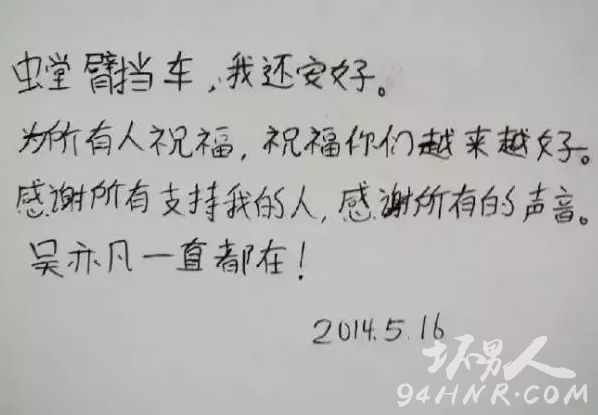 螳臂挡车，我还安好。
为所有人祝福，祝福你们越来越好。
感谢所有支持我的人，感谢所有的声音。
吴亦凡一直都在！
2014.5.16
坏男人
94HNR.COM